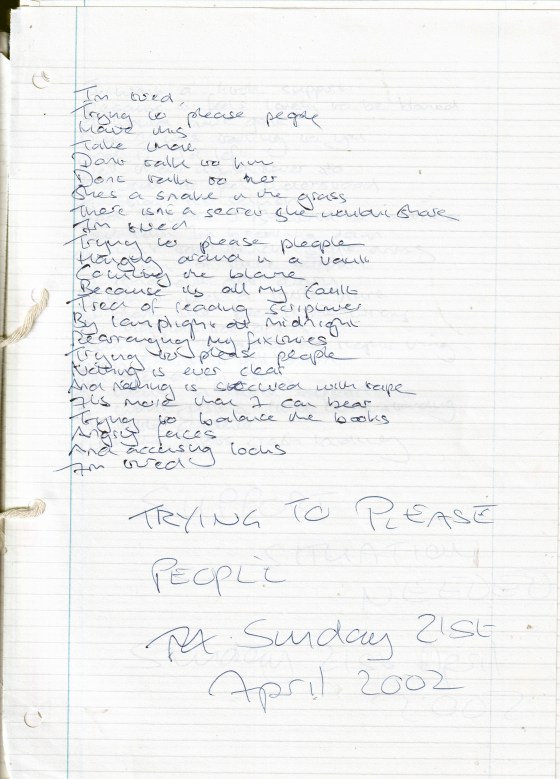 I'm tired,
Trying to please people
Move this
Take that
Dont talk to him
Dont talk to her
She's a snake in the grass
There isnt a secret she wouldn't share
I'm tired
Trying to please pleople
Hanging around in a vault
Counting the blame
Because its all my fault
Tired of reading scriptures
By lamplight at midnight
Rearranging my fixtures
Trying to please people
Nothing is ever clear
And nothing is secured with tape
Its more than I can bear
Trying to balance the books
Angry faces
And accusing looks
I'm tired
TRYING TO PLEASE
PEOPLE
Sunday 21st
April 2002